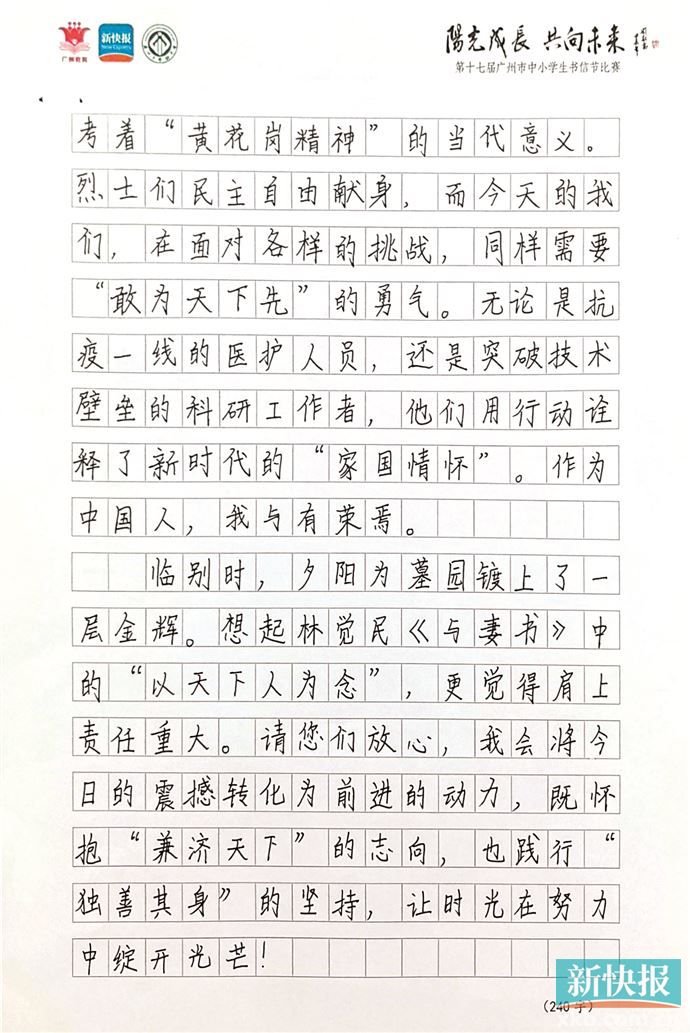 广州乾和
新快报
New Express
陽光成長 共向未来
第十七届广州市中小学生书信节比赛
考着“黄花岗精神”的当代意义。
烈士们民主自由献身，而今天的我
们，在面对各样的挑战，同样需要
“敢为天下先”的勇气。无论是抗
疫一线的医护人员，还是突破技术
壁垒的科研工作者，他们用行动诠
释了新时代的“家国情怀”。作为
中国人，我与有荣焉。
临别时，夕阳为墓园镀上了一
层金辉。想起林觉民《与妻书》中
的“以天下人为念”，更觉得肩上
责任重大。请您们放心，我会将今
日的震撼转化为前进的动力，既怀
抱“兼济天下”的志向，也践行“
独善其身”的坚持，让时光在努力
中绽开光芒！
新快报
（240字）